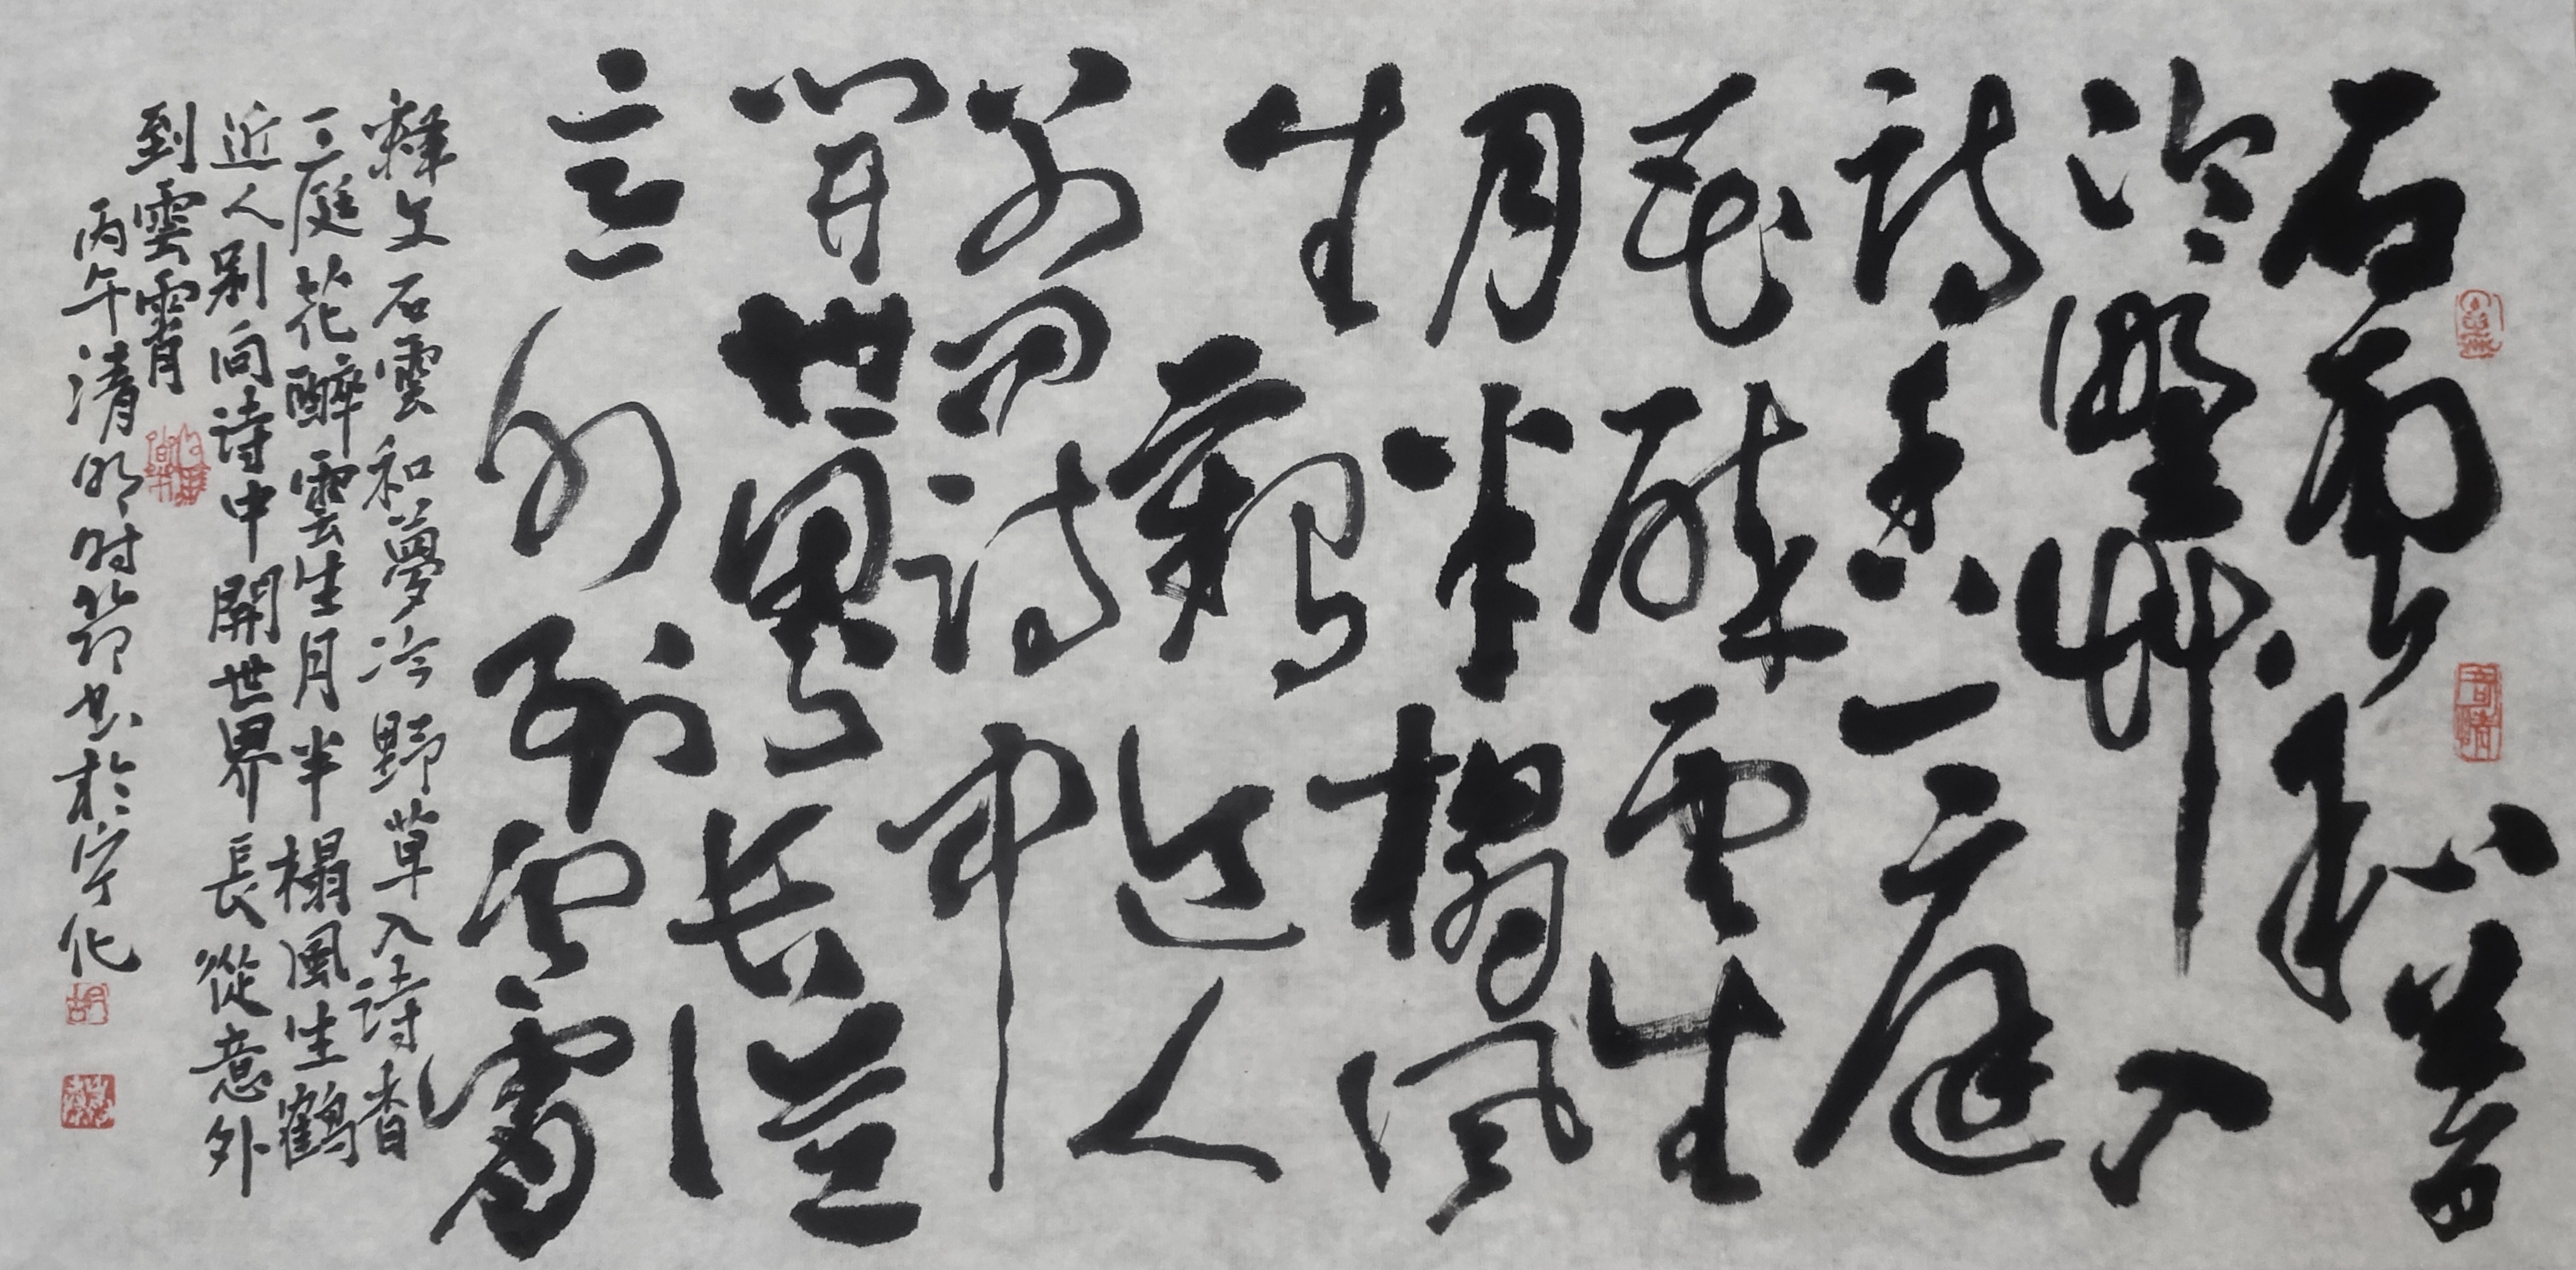 石雲和夢
冷野艸入
詩香一庭
花醉雲生
月半榻風
生鶴近人
别向詩中
開世界长從
意外到雲霄
釋文石雲和夢冷野草入詩香
一庭花醉雲生月半榻風生鶴
近人别向詩中開世界長從意外
到雲霄
丙午清明时節书於宁化
胡